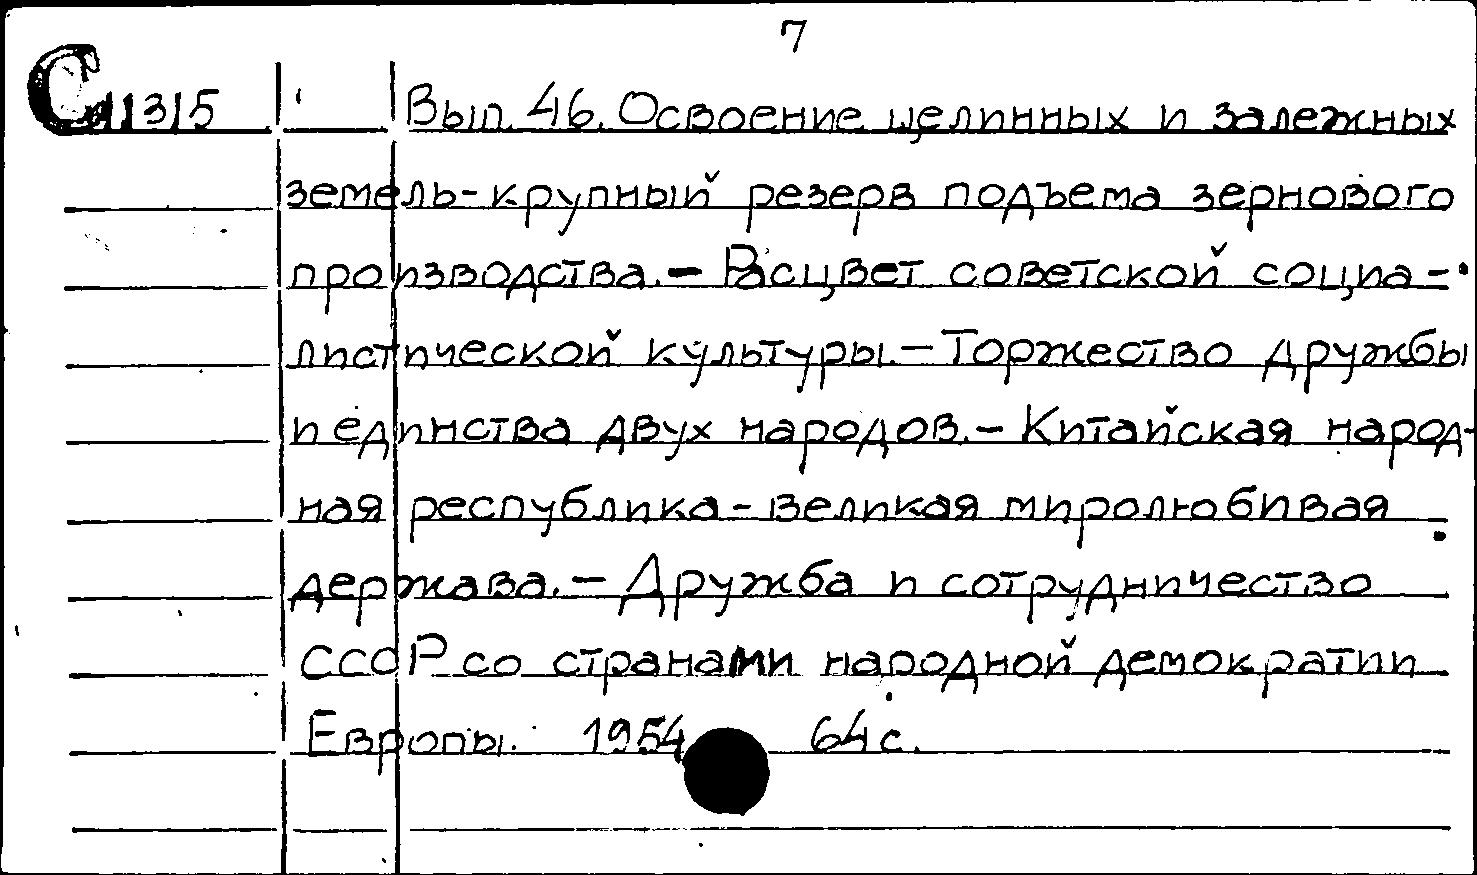 7
С 11315 Вып. 46. Освоение целинных и залежных
земель-крупный резерв подъема зернового
производства.- Расцвет советской социа-
листической культуры.- Торжество дружбы
и единства двух народов.- Китайская народ-
ная республика - великая миролюбивая
держава.- Дружба и сотрудничество
СССР со странами народной демократии
Европы. 1954 64 с.